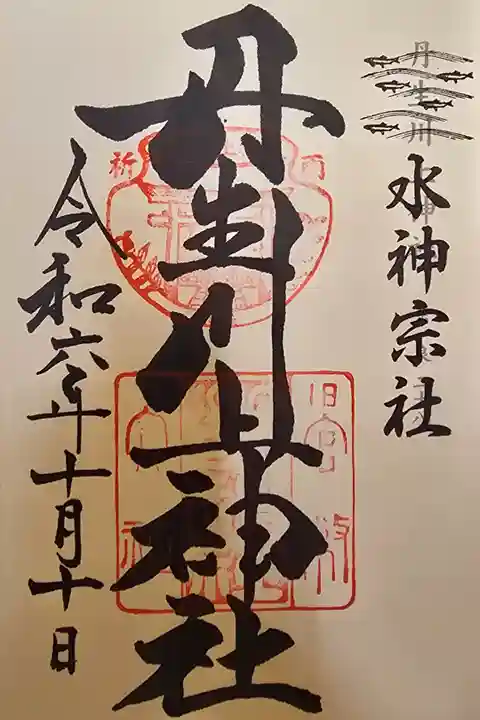 水神宗社
丹生川上神社
令和六年十月十日
丹生川
祈
旧官幣